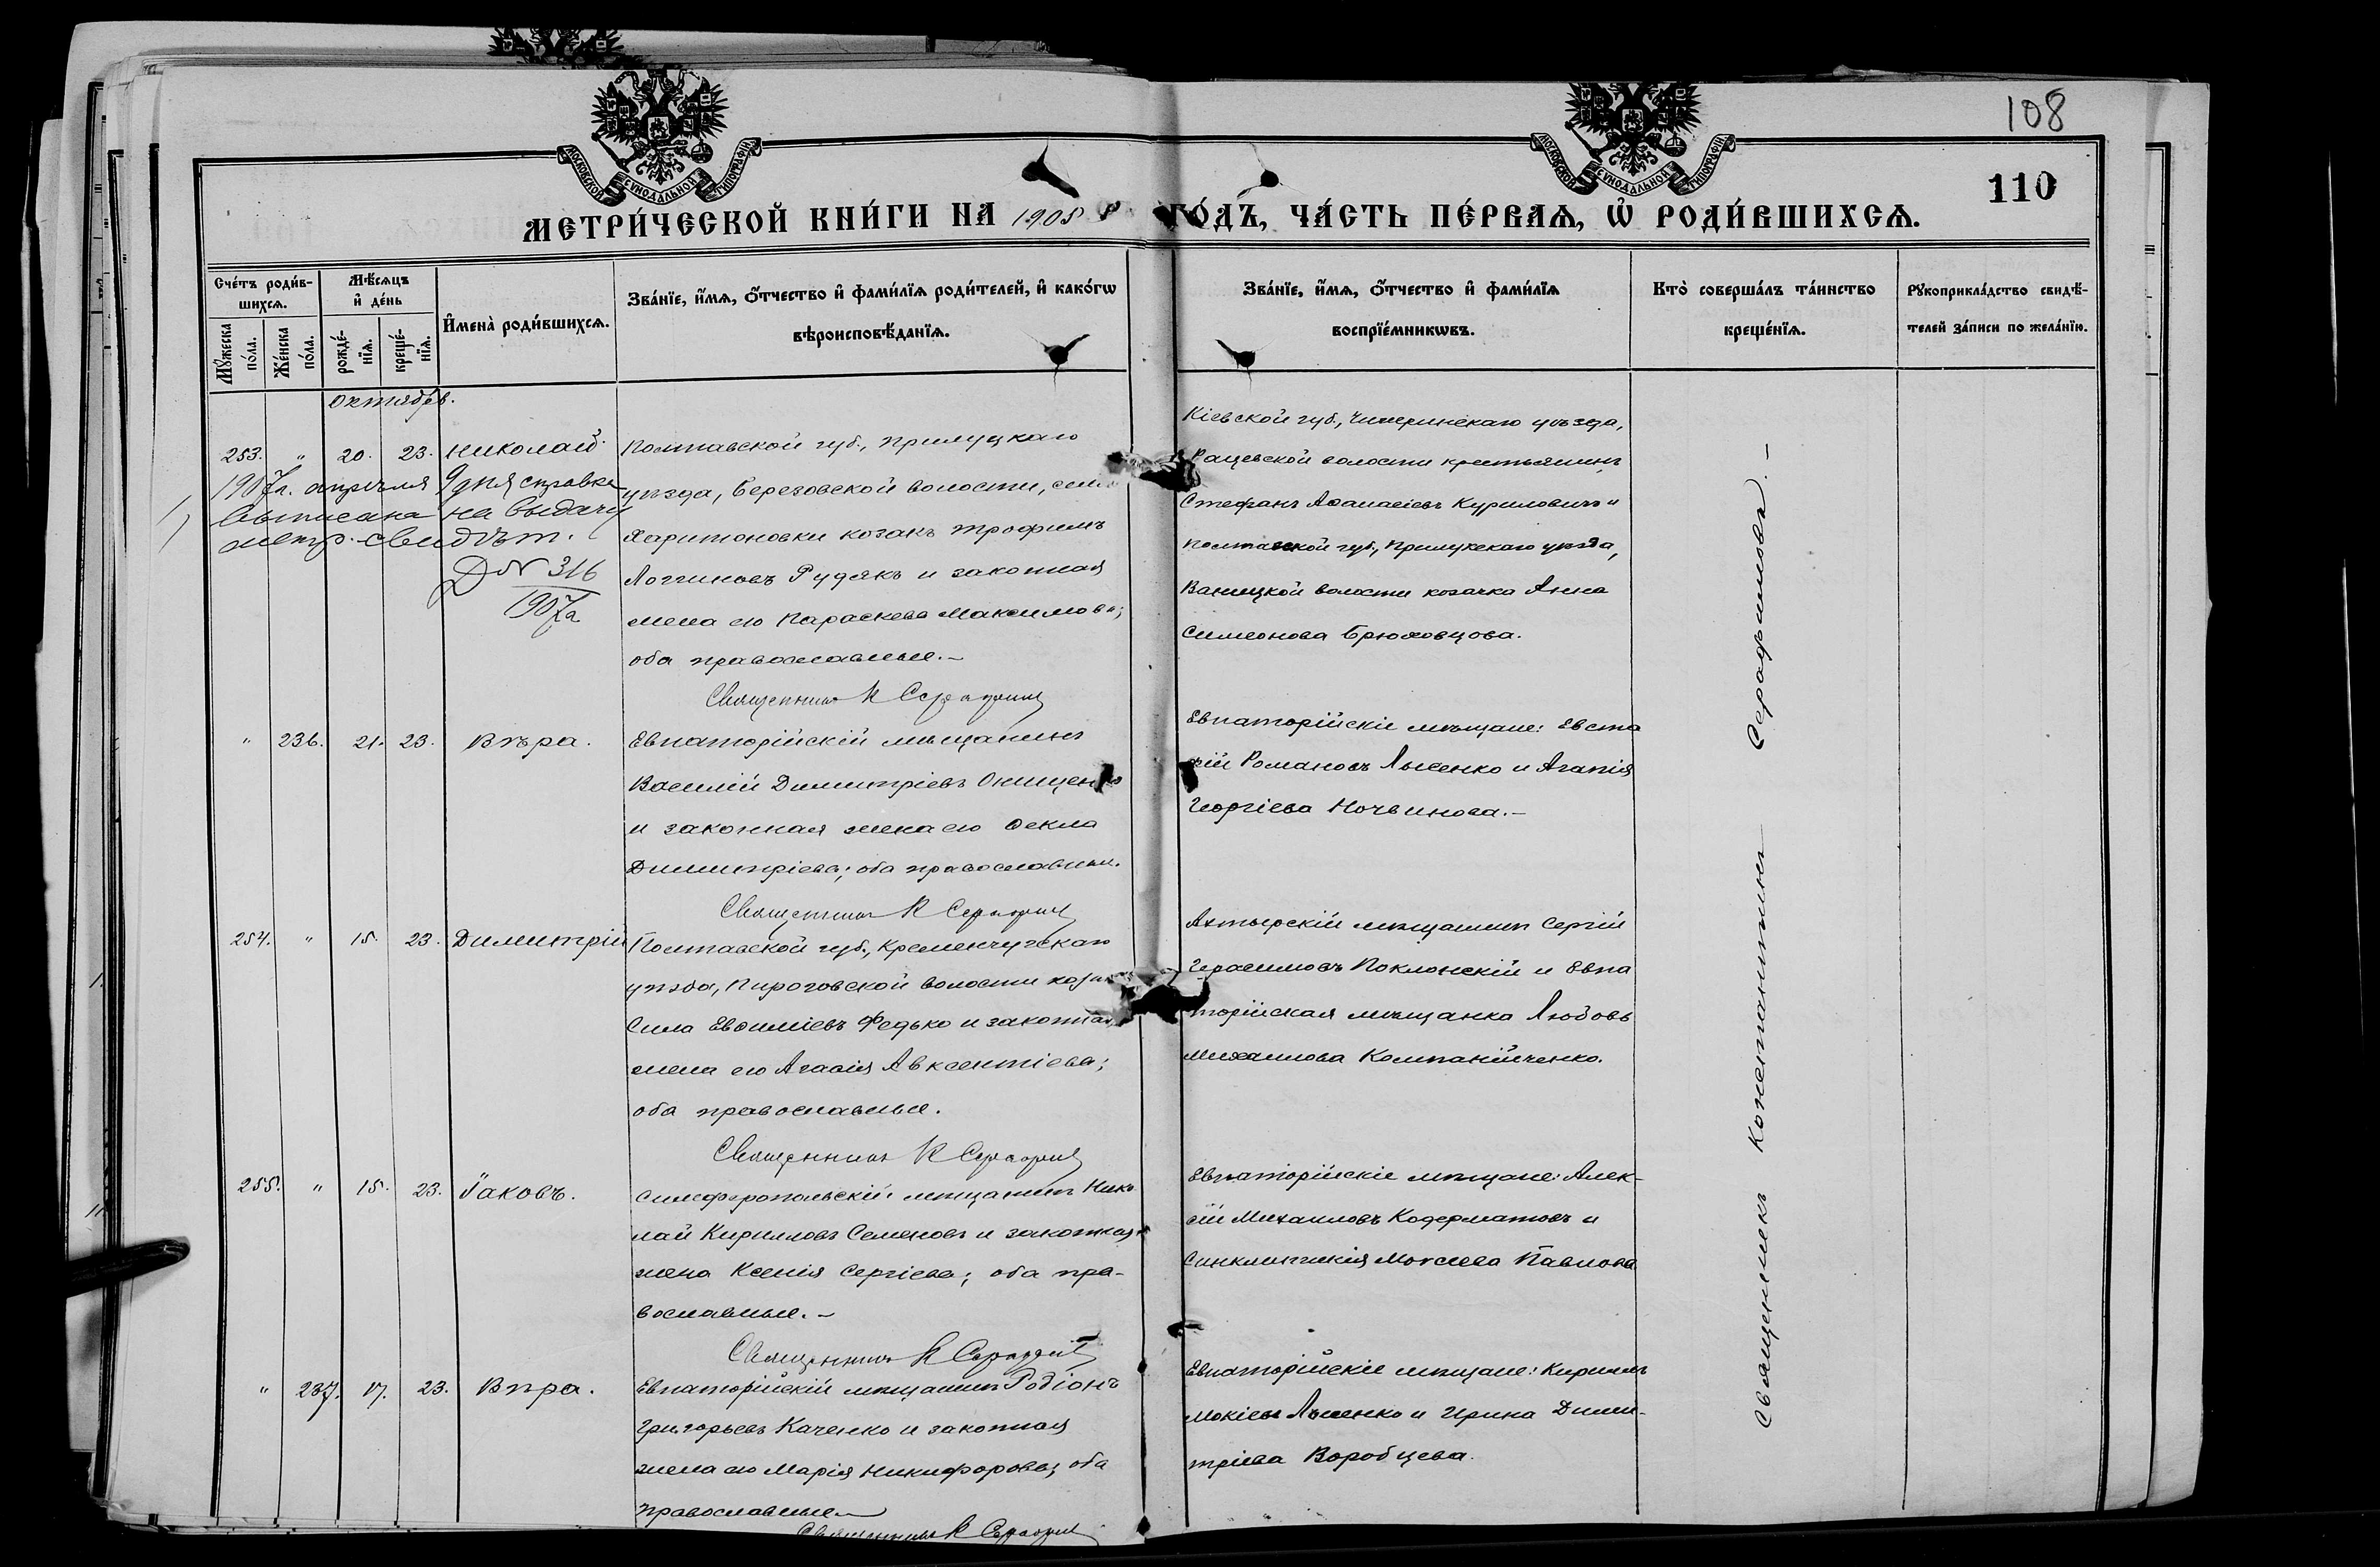 108
110
МОСКОВСКОЙ СУНОДАЛЬНОЙ ТИПОГРАФІИ
МОСКОВСКОЙ СУНОДАЛЬНОЙ ТИПОГРАФІИ
МЕТРИ́ЧЕСКОЙ КНИ́ГИ НА 1905 ГО́ДЪ, ЧА́СТЬ ПЕ́РВАѦ, Ѽ РОДИ́ВШИХСѦ.
Сче́тъ роди́в-
шихсѧ.
Мꙋ́жеска по́ла.
Же́нска по́ла.
Мѣ́сѧцъ
и҆ де́нь
рожде́-
нїѧ.
креще́-
нїѧ.
И҆мена̀ роди́вшихсѧ.
Зва́нїе, и҆́мѧ, ѻ҆́тчество и҆ фами́лїѧ роди́телей, и҆ како́гѡ
вѣроисповѣ́данїѧ.
Зва́нїе, и҆́мѧ, ѻ҆́тчество и҆ фами́лїѧ
воспрїе́мникѡвъ.
Кто̀ соверша́лъ та́инство
креще́нїѧ.
Рꙋкоприкла́дство свидѣ́-
телей за́писи по жела́нїю.
Октябрь.
253. " 20. 23. Николай
Полтавской губ., Прилуцкаго
уѣзда, Березовской волости, села
Харитоновки козакъ Трофимъ
Логгиновъ Рудякъ и законная
жена его Параскева Максимова;
оба православные.—
Священникъ К Серафимовъ
1907г. апрѣля 9 дня справка
выписана на выдачу
метр. свидѣт.
Д № 316
1907г
Кіевской губ., Чигеринскаго уѣзда,
Рацевской волости крестьянинъ
Стефанъ Аѳанасіевъ Куриловичъ и
Полтавской губ., Прилукскаго уѣзда,
Ваницкой волости козачка Анна
Симеонова Брюховцова.
" 236. 21. 23. Вѣра.
Евпаторійскій мѣщанинъ
Василій Димитріевъ Онищенко
и законная жена его Ѳекла
Димитріева; оба православные.
Священникъ К Серафимовъ
Евпаторійскіе мѣщане: Евста
фій Романовъ Лысенко и Агапія
Георгіева Ночвинова.—
254. " 15. 23. Димитрій
Полтавской губ., Кременчугскаго
уѣзда, Пироговской волости козакъ
Сила Евѳиміевъ Федько и законная
жена его Агаѳія Авксентіева;
оба православные.
Священникъ К Серафимовъ
Ахтырскій мѣщанинъ Сергій
Герасимовъ Поклонскій и Евпа
торійская мѣщанка Любовь
Михаилова Компанійченко.
255. " 15. 23. Іаковъ.
Симферопольскій мѣщанинъ Нико
лай Кирилловъ Семеновъ и законная
жена Ксенія Сергіева; оба пра-
вославные.—
Священникъ К Серафимовъ
Евпаторійскіе мѣщане: Алек-
сій Михаиловъ Кодерматовъ и
Синклитикія Моисеева Павлова
" 237. 17. 23. Вѣра.
Евпаторійскій мѣщанинъ Родіонъ
Григорьевъ Каченко и законная
жена его Марія Никифорова; оба
православные
Священникъ К Серафимовъ
Евпаторійскіе мѣщане: Кириллъ
Мокіевъ Лысенко и Ирина Дими-
тріева Воробцева.
Священникъ Константинъ Серафимовъ.—